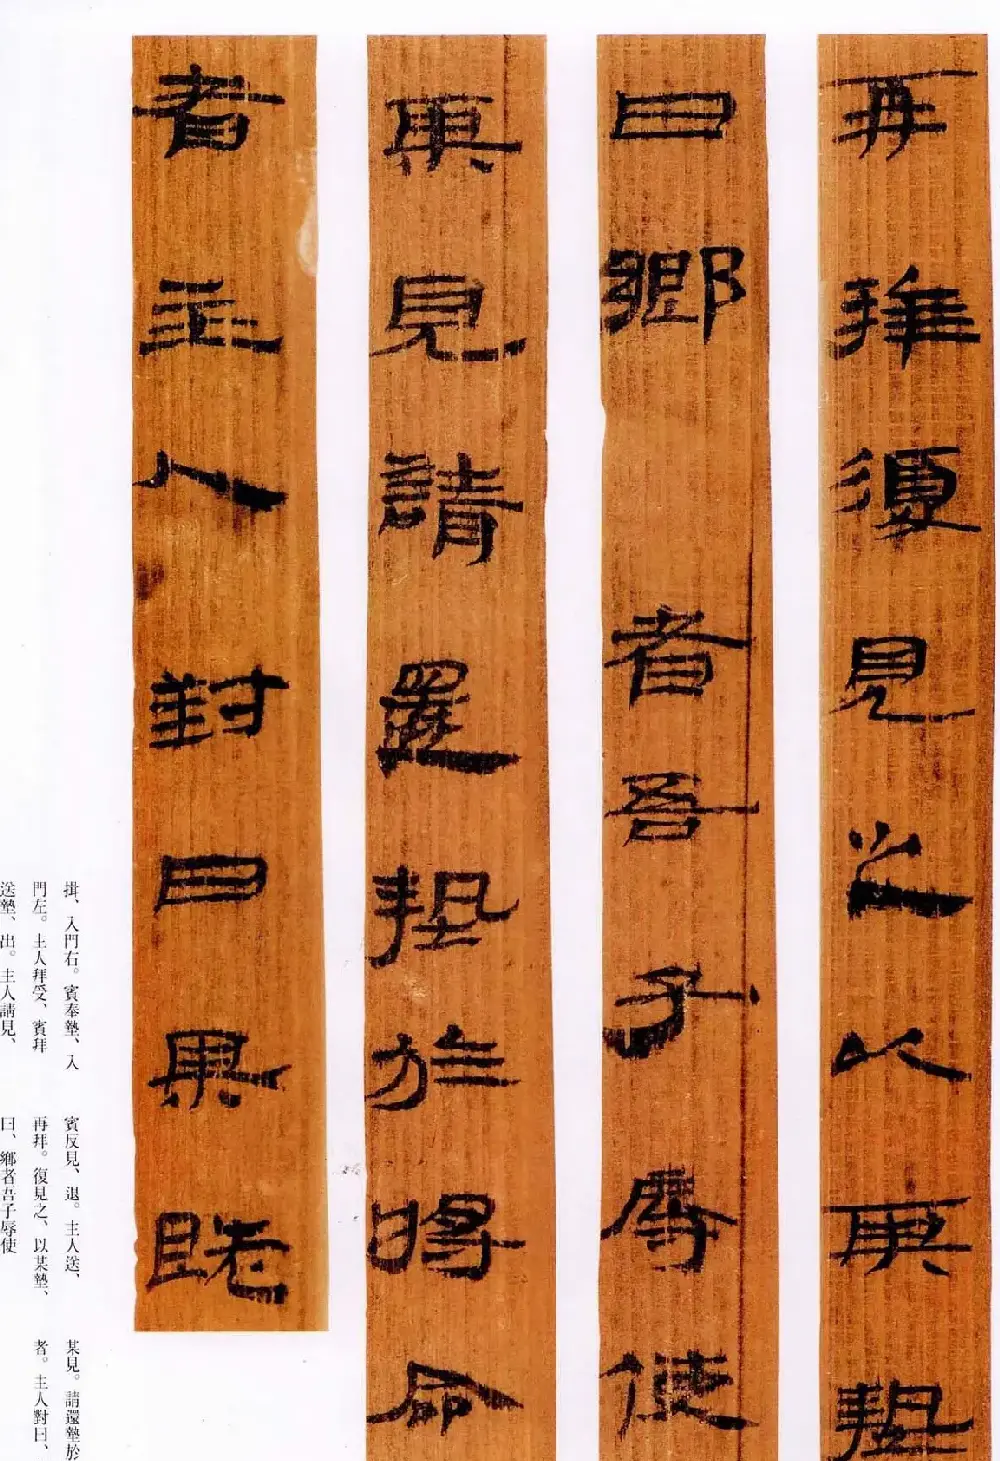 再拜復見之以某墊
曰鄉者吾子辱使
某見請還墊於將命
者主人對曰某既
揖、入門右。賓奉墊、入
門左。主人拜受、賓拜
送墊、出。主人請見、
賓反見、退。主人送、
再拜。復見之、以某墊、
曰、鄉者吾子辱使
某見。請還墊於
者。主人對曰、